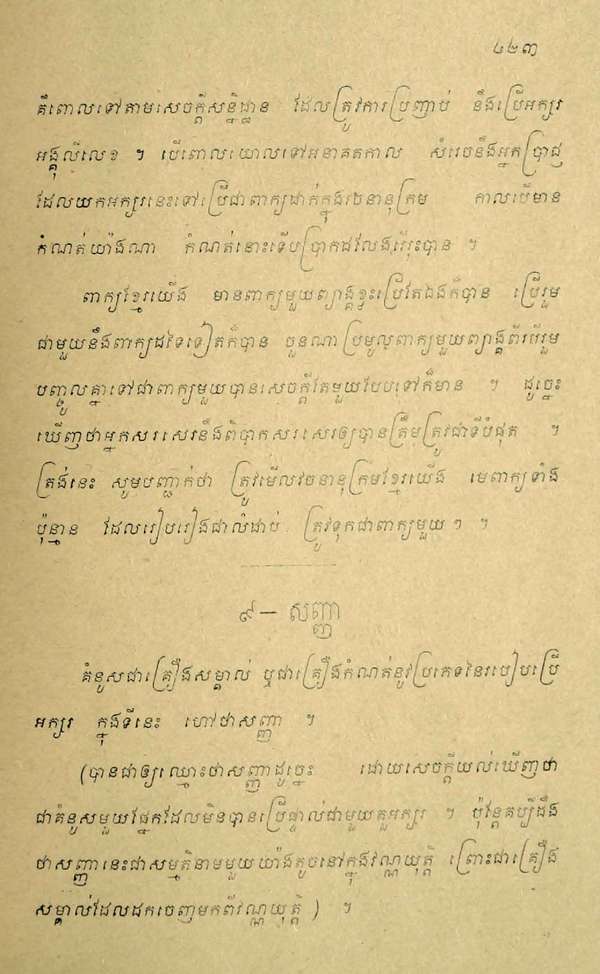 ៤២៣
គឺពោលទៅតាមសេចក្ដីសន្និដ្ឋាន ដែលត្រូវការប្រញាប់ នឹងប្រើអក្សរ
អង្គុលីលេខ ។ បើពោលយោលទៅអនាគតកាល សំរេចនឹងអ្នកប្រាជ្ញ
ដែលយកអក្សរនេះទៅប្រើជាពាក្យដាក់ក្នុងវចនានុក្រម កាលបើមាន
កំណត់យ៉ាងណា កំណត់នោះទើបប្រាកដលែងរើរុះបាន ។
ពាក្យខ្មែរយើង មានពាក្យមួយព្យាង្គខ្លះប្រើតែឯងក៏បាន ប្រើរួម
ជាមួយនឹងពាក្យដទៃទៀតក៏បាន ជួនណាប្រមូលពាក្យមួយព្យាង្គពីរបីរួម
បញ្ចូលគ្នាទៅជាពាក្យមួយបានសេចក្ដីតែមួយបែបទៅក៏មាន ។ ដូច្នេះ
ឃើញថាអ្នកសរសេរនឹងពិបាកសរសេរឲ្យបានត្រឹមត្រូវជាទីបំផុត ។
ត្រង់នេះ សូមបញ្ជាក់ថា ត្រូវមើលវចនានុក្រមខ្មែរយើង មេពាក្យទាំង
ប៉ុន្មាន ដែលរៀបរៀងជាលំដាប់ ត្រូវទុកជាពាក្យមួយ ៗ ។
៩ – សញ្ញា
គំនូសជាគ្រឿងសម្គាល់ ឬជាគ្រឿងកំណត់នូវប្រភេទនៃរបៀបប្រើ
អក្សរ ក្នុងទីនេះ ហៅថាសញ្ញា ។
(បានជាឲ្យឈ្មោះថាសញ្ញាដូច្នេះ ដោយសេចក្ដីយល់ឃើញថា
ជាគំនូសមួយផ្នែកដែលមិនបានប្រើផ្ទាល់ជាមួយតួអក្សរ ។ ប៉ុន្តែគប្បីដឹង
ថាសញ្ញានេះជាសម្មតិនាមមួយយ៉ាងតូចនៅក្នុងវណ្ណយុត្តិ ព្រោះជាគ្រឿង
សម្គាល់ដែលដកចេញមកពីវណ្ណយុត្តិ ) ។